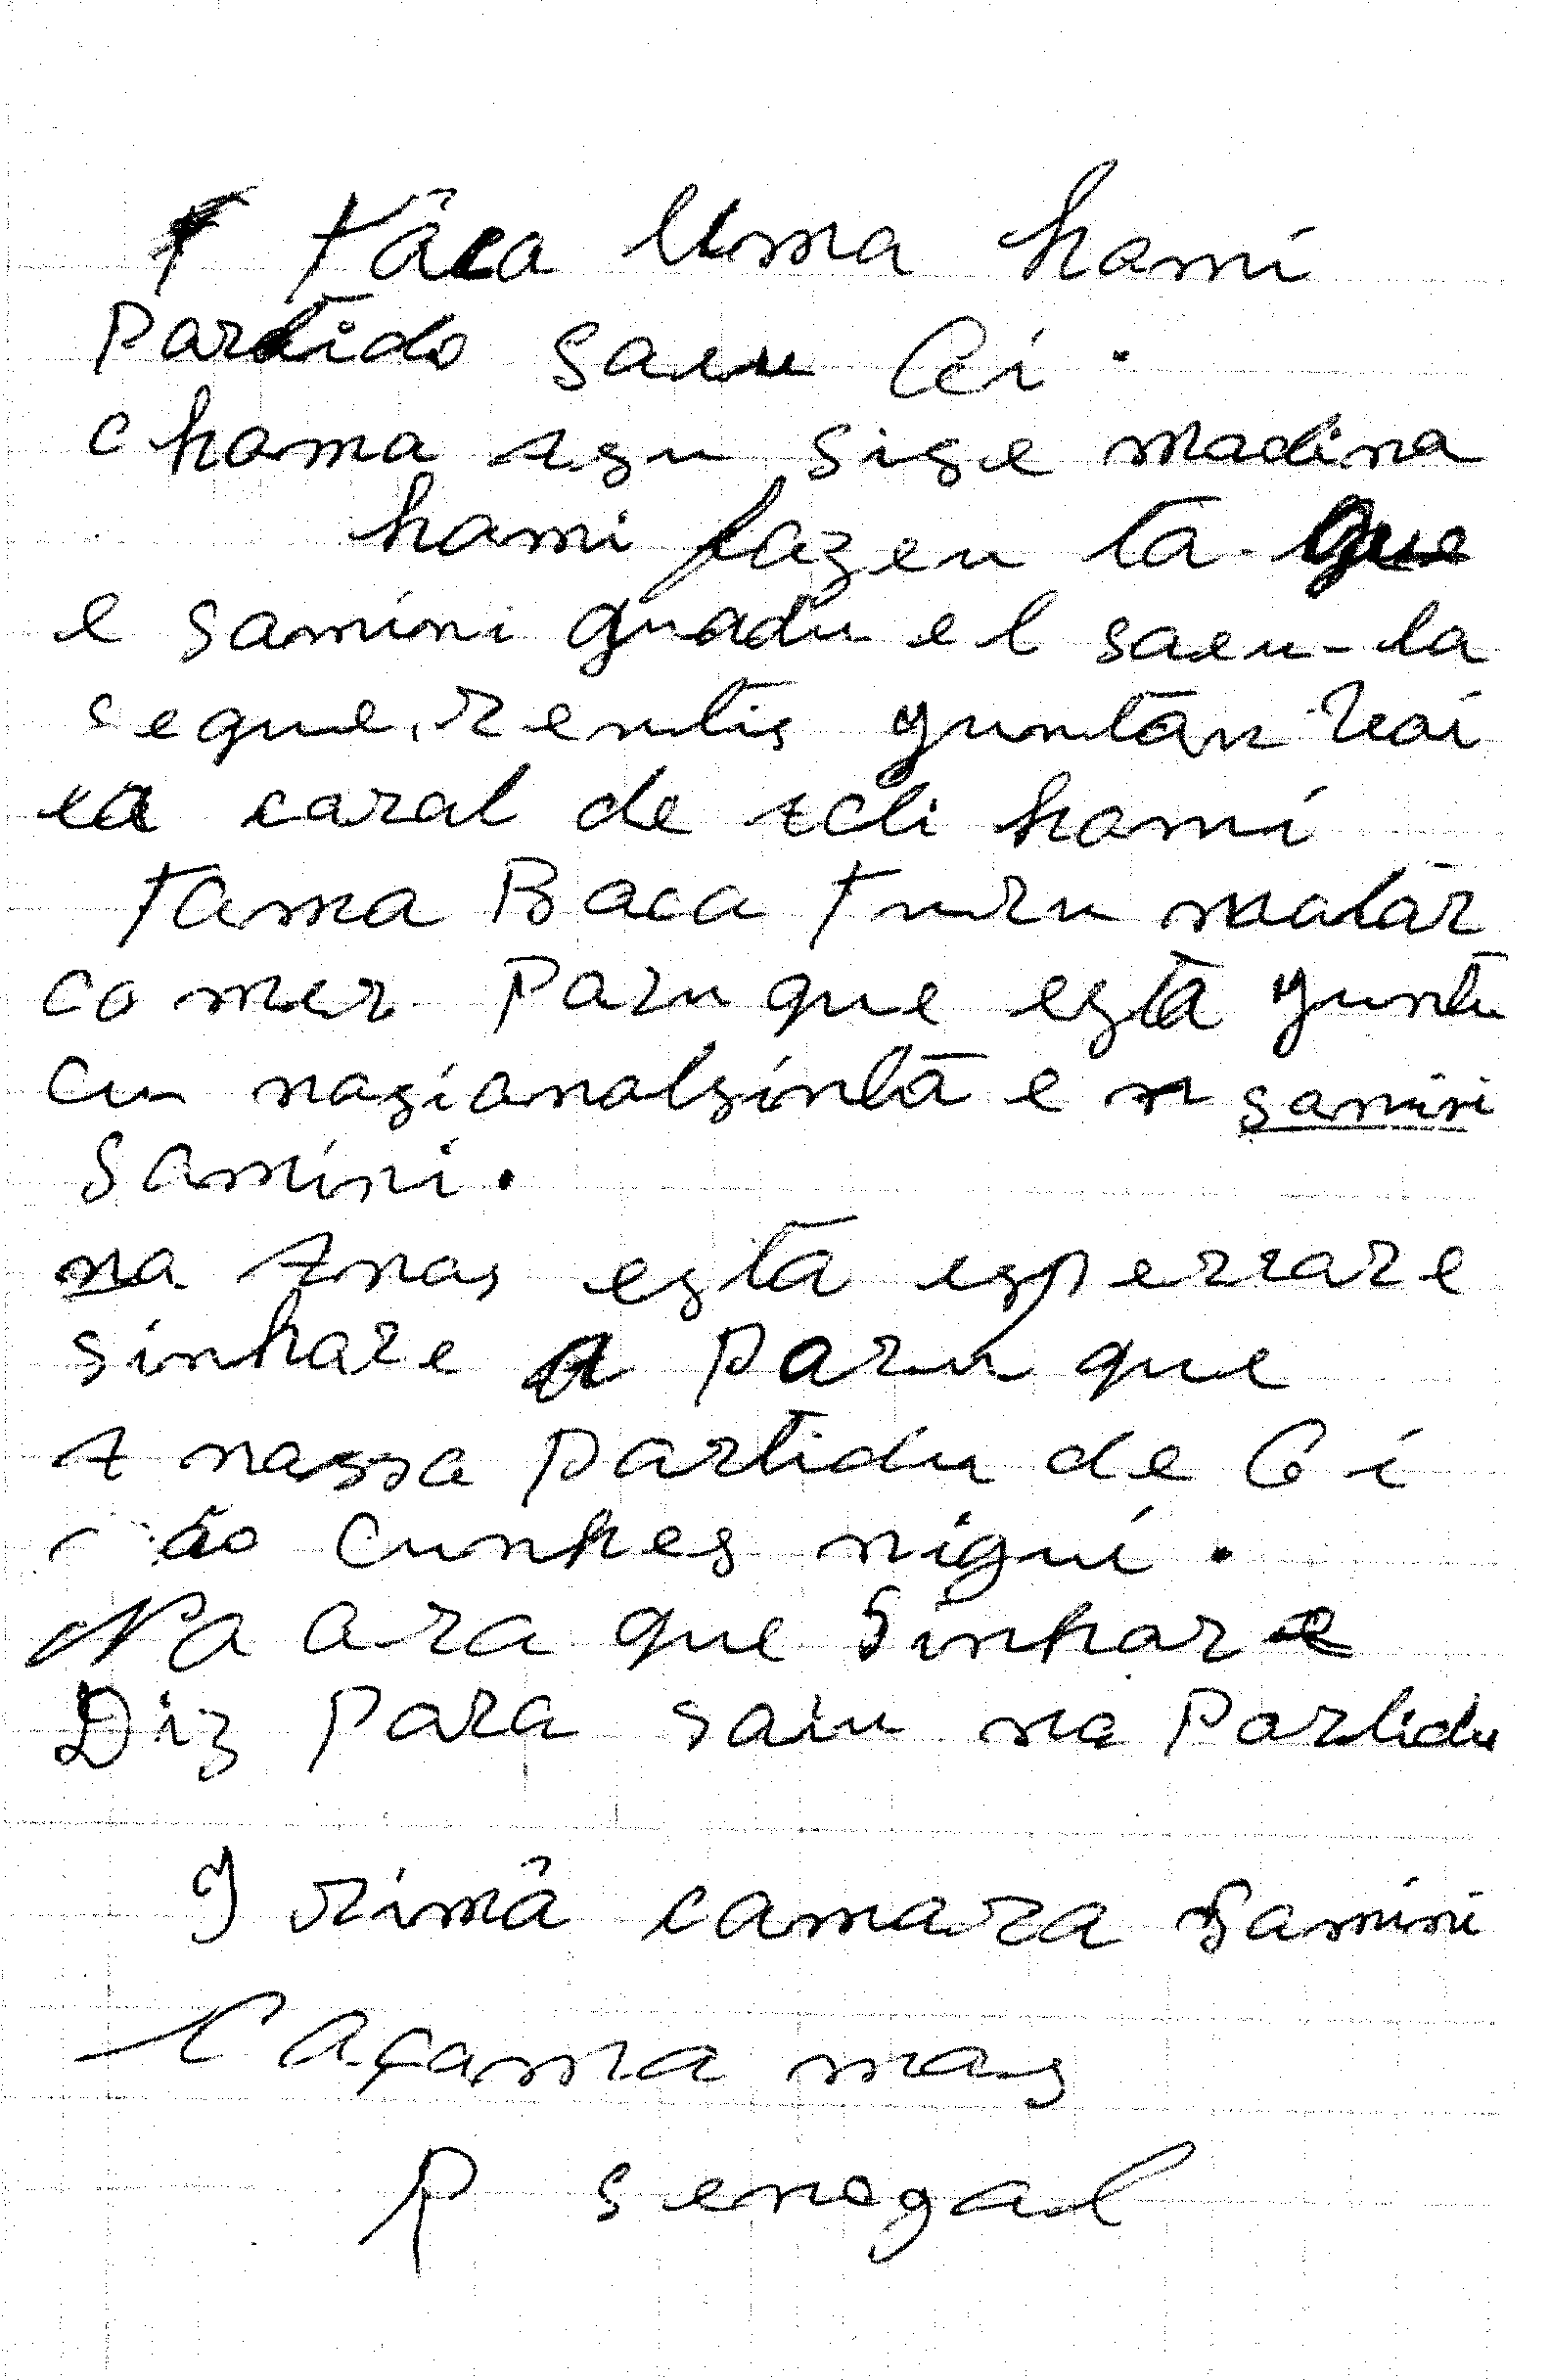 Tâca Uma hami
Partido saeu Ci.
chama asu sise madina
hami fazeu ta que
e samini guadu el saeu-la
seque. rentis yuntan vai
ea caral de eli hami
Tama Baca turu matar
comer Paruque está yuntu
cu nasionalsintã e n samini
Samini.
na Anas está esperrare
sinhare a Paru que
A nassa Partidu de Ci
ão cunhes nigui.
Na ara que Sinhare
Diz Para saiu na Partidu
I rimâ camara Samini
Caçama mas
R senegal